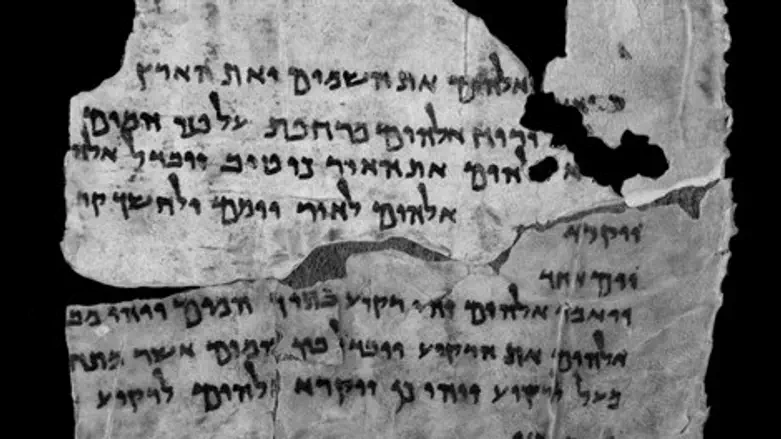 אלהים את השמים ואת הארץ
ורוח אלהים מרחפת על פני המים
להים את האור כי טוב ויבדל אלה
אלהים לאור יומם ולחשך קר
ויקרא
יום אחד
ויאמר אלהים יהי רקיע בתוך המים ויהי מב
אלהים את הרקיע ויבדל בין המים אשר מתח
מעל לרקיע ויהי כן ויקרא אלהים לרקיע